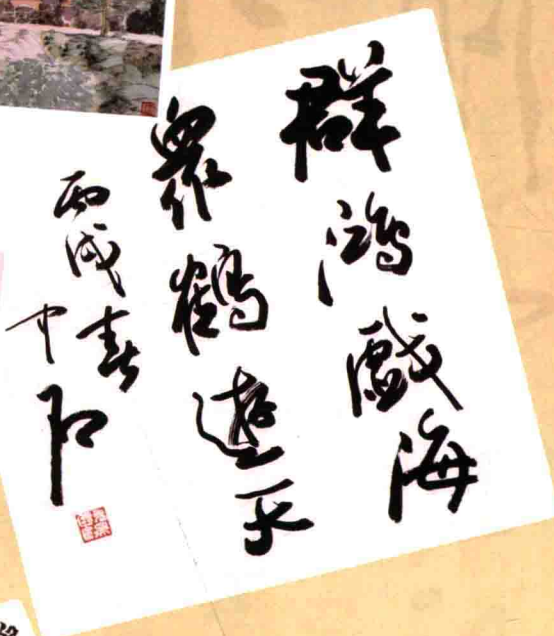 群鴻戲海
眾鶴遊天
丙戌春
中石